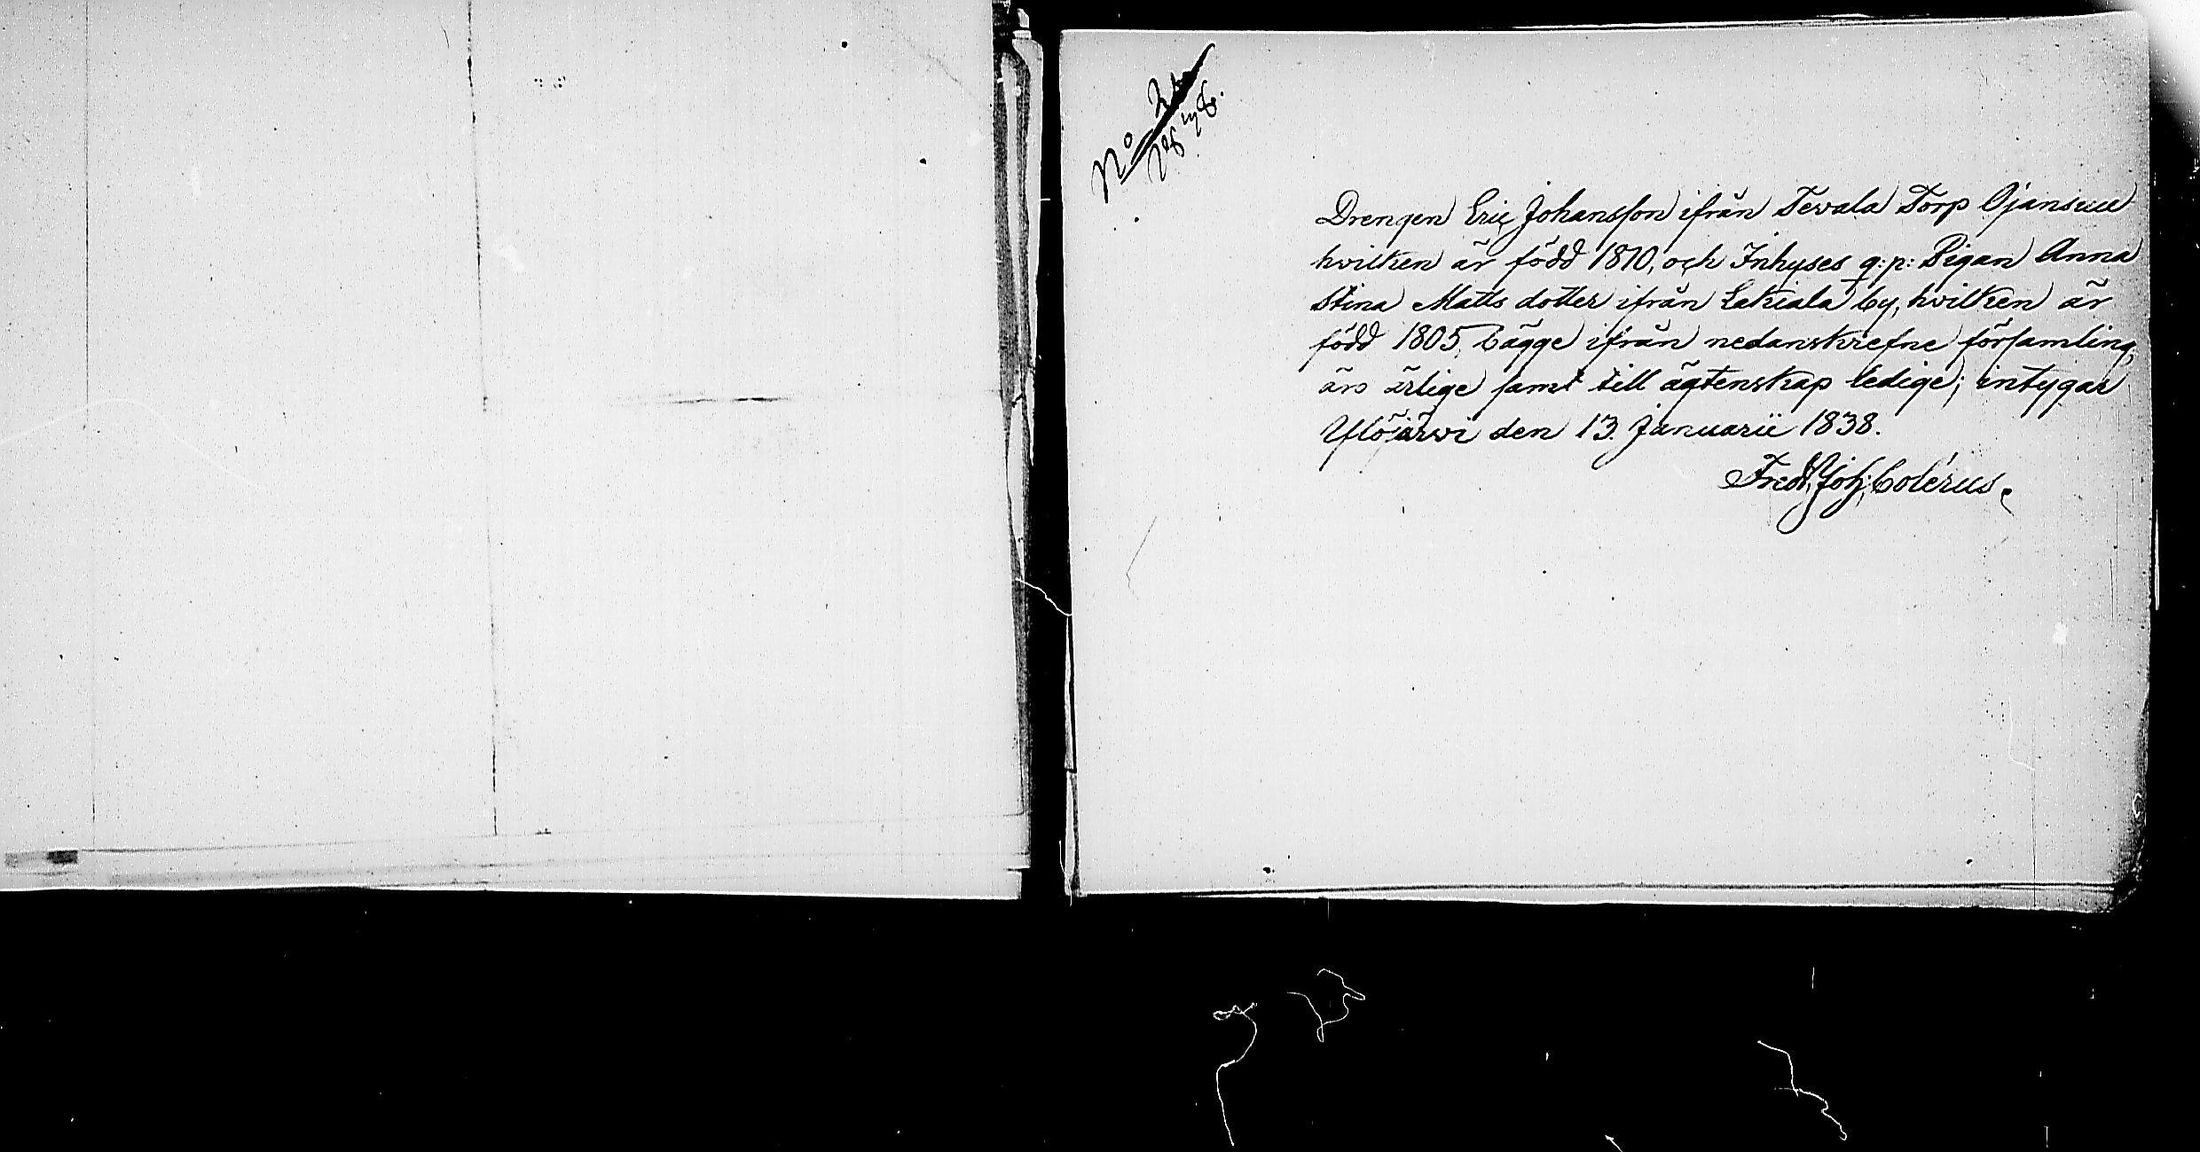 No
Drengen Eric Johansson ifrån Tevala Torp Ojansuu
hvilken är född 1810, och Inhyses q:p: Pigan Anna
Stina Matts dotter ifrån Lakiala by, hvilken är
född 1805, bägge ifrån nedanskrefne församling,
äro ärlige samt till ägtenskap ledige; intygar
Ylöjärvi den 13. Januarii 1838.
Fredr. Joh. Colérus.